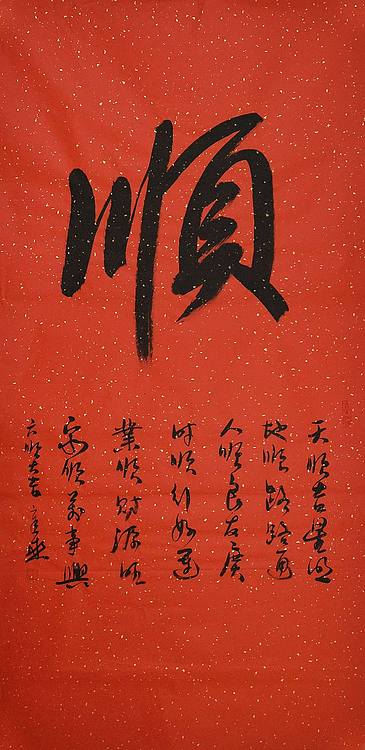 順
天順吉星照
地順路路通
人順良友廣
时順行好運
業順財源旺
家順萬事興
六順大吉